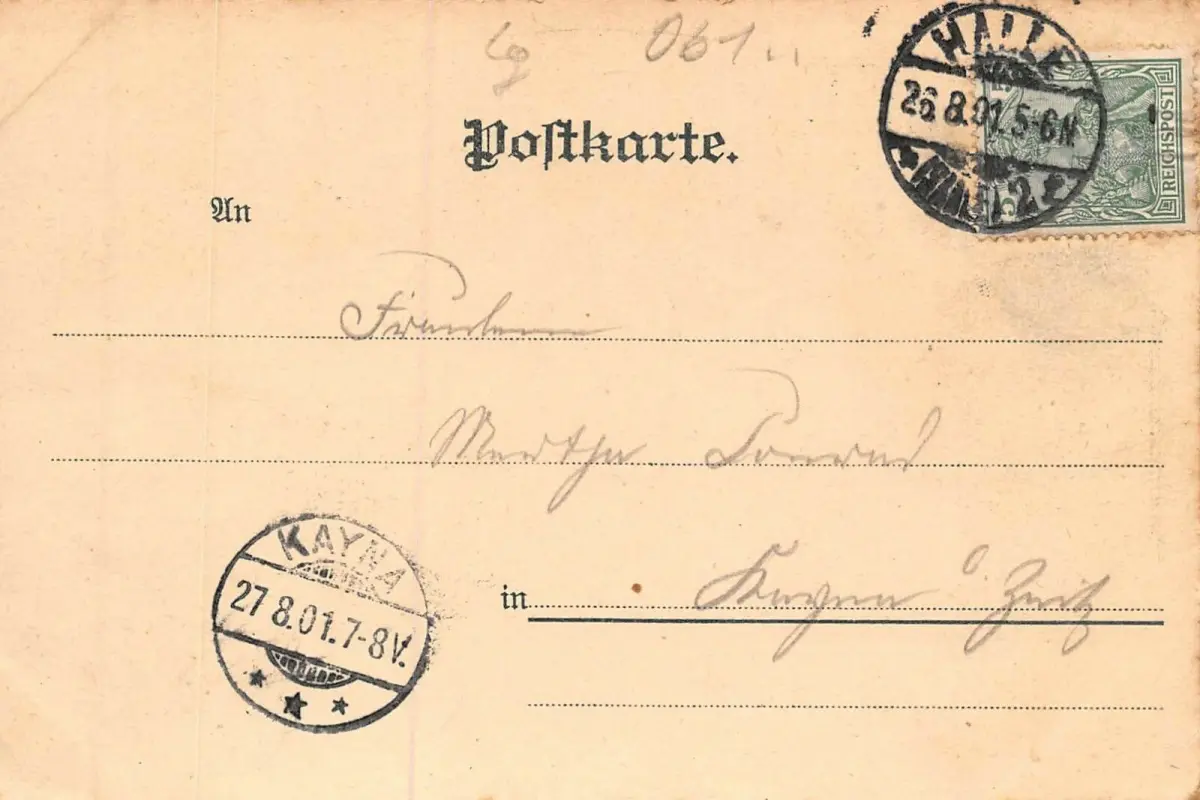 061..
HALLE
26.8.01.5-6N.
2
REICHSPOST
5
Postkarte.
An
Fräulein
Martha Conrad
KAYNA
27 8.01.7-8V.
in Kayna b Zeitz